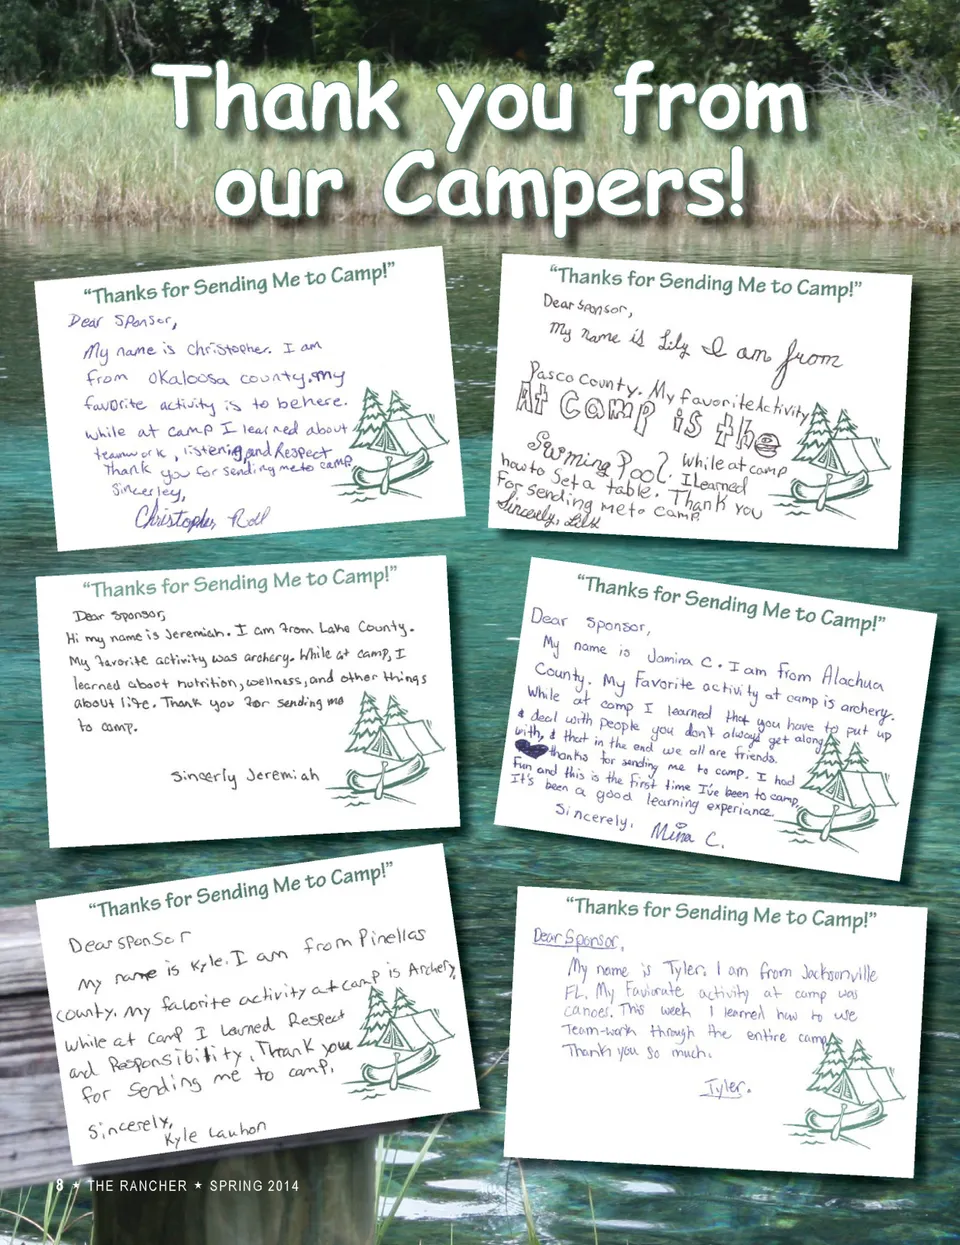 Thank you from
our Campers!
"Thanks for Sending Me to Camp!"
Dear Sponsor,
My name is Christopher. I am
from Okaloosa county. my
favorite activity is to be here.
while at camp I learned about
teamwork, listening, and Respect
Thank you for sending me to camp
Sincerley,
Christopher
"Thanks for Sending Me to Camp!"
Dear Sponsor,
My name is Lily I am from
Pasco County. My favorite Activity
At Camp is the
Swimming Pool. While at camp
I learned
how to Set a table. Thank you
For sending me to camp.
Sincerely,
"Thanks for Sending Me to Camp!"
Dear Sponsor,
Hi my name is Jeremiah. I am from Lake County.
My favorite activity was archery. While at camp, I
learned about nutrition, wellness, and other things
about life. Thank you for sending me
to camp.
Sincerly Jeremiah
"Thanks for Sending Me to Camp!"
Dear Sponsor,
My name is Jamina C. I am from Alachua
County. My Favorite activity at camp is archery.
While at camp I learned that you have to put up
& deal with people you don't always get along
with, & that in the end we all are friends.
thanks for sending me to camp. I had
fun and this is the first time I've been to camp,
It's been a good learning experiance.
Sincerely, Mina C.
"Thanks for Sending Me to Camp!"
Dear sponsor
My name is Kyle. I am from Pinellas
county. My favorite activity at camp is Archery,
while at camp I learned Respect
and Responsibility. Thank you
for sending me to camp.
Sincerely,
Kyle Lauhon
"Thanks for Sending Me to Camp!"
Dear Sponsor,
My name is Tyler. I am from Jacksonville
FL. My Faviorate activity at camp was
canoes. This week I learned how to use
Team-work through the entire camp.
Thank you so much.
Tyler.
8 ★ THE RANCHER ★ SPRING 2014